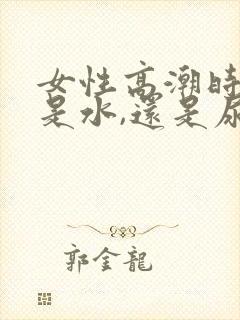 女性高潮時
是水,還是尿
郭金龍